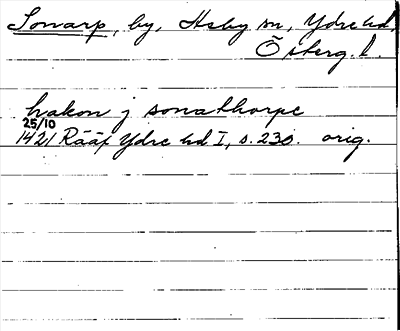 Sonarp, by, Asby sn, Ydre hd,
Österg. l.
hakon j sonathorpe
25/10
1421 Rääf Ydre hd I, s. 230. orig.